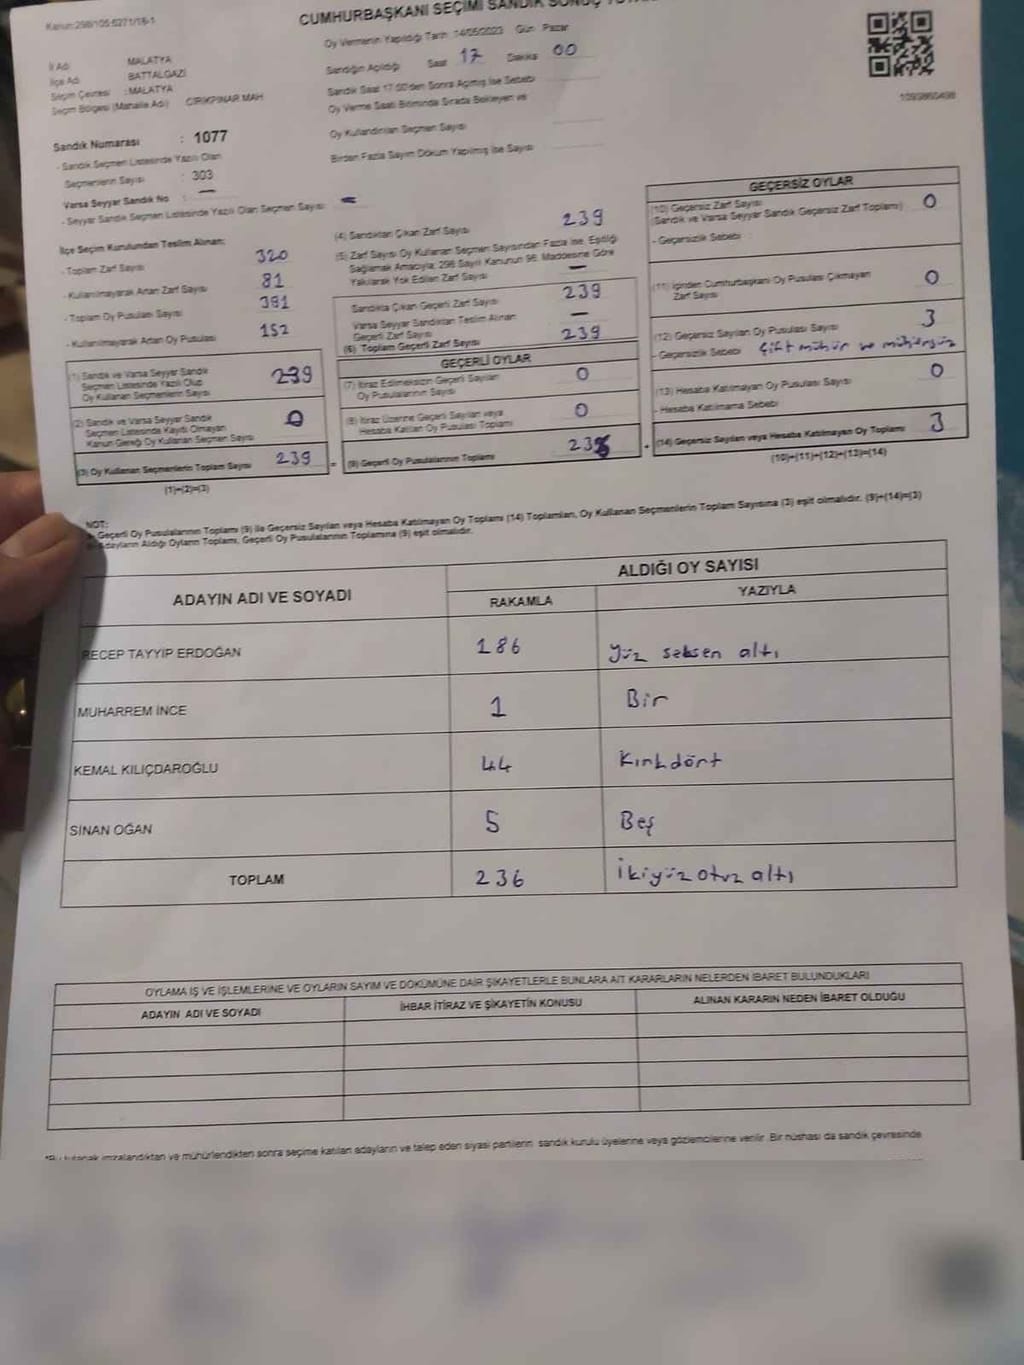 Kanun:298/105-6271/18-1
CUMHURBAŞKANI SEÇİMİ SANDIK SONUÇ
Oy Vermenin Yapıldığı Tarih: 14/05/2023 Gün: Pazar
İl Adı : MALATYA
İlçe Adı : BATTALGAZİ
Seçim Çevresi : MALATYA
Seçim Bölgesi (Mahalle Adı) : CIRIKPINAR MAH
Sandık Numarası : 1077
- Sandık Seçmen Listesinde Yazılı Olan
Seçmenlerin Sayısı : 303
Varsa Seyyar Sandık No : —
- Seyyar Sandık Seçmen Listesinde Yazılı Olan Seçmen Sayısı : —
Sandığın Açıldığı Saat 17 Dakika 00
Sandık Saat 17.00'den Sonra Açılmış İse Sebebi
Oy Verme Saati Bitiminde Sırada Bekleyen ve
Oy Kullandırılan Seçmen Sayısı
Birden Fazla Sayım Döküm Yapılmış İse Sayısı
1093860498
İlçe Seçim Kurulundan Teslim Alınan:
- Toplam Zarf Sayısı 320
- Kullanılmayarak Artan Zarf Sayısı 81
- Toplam Oy Pusulası Sayısı 391
- Kullanılmayarak Artan Oy Pusulası 152
(1) Sandık ve Varsa Seyyar Sandık
Seçmen Listesinde Yazılı Olup
Oy Kullanan Seçmenlerin Sayısı 239
(2) Sandık ve Varsa Seyyar Sandık
Seçmen Listesinde Kayıtlı Olmayan
Kanun Gereği Oy Kullanan Seçmen Sayısı 0
(3) Oy Kullanan Seçmenlerin Toplam Sayısı 239
(1)+(2)=(3)
(4) Sandıktan Çıkan Zarf Sayısı 239
(5) Zarf Sayısı Oy Kullanan Seçmen Sayısından Fazla İse, Eşitliği
Sağlamak Amacıyla, 298 Sayılı Kanunun 98. Maddesine Göre
Yakılarak Yok Edilen Zarf Sayısı —
Sandıkta Çıkan Geçerli Zarf Sayısı 239
Varsa Seyyar Sandıktan Teslim Alınan
Geçerli Zarf Sayısı —
(6) Toplam Geçerli Zarf Sayısı 239
GEÇERLİ OYLAR
(7) İtiraz Edilmeksizin Geçerli Sayılan
Oy Pusulalarının Sayısı 0
(8) İtiraz Üzerine Geçerli Sayılan veya
Hesaba Katılan Oy Pusulası Toplamı 0
(9) Geçerli Oy Pusulalarının Toplamı 236
GEÇERSİZ OYLAR
(10) Geçersiz Zarf Sayısı 0
(Sandık ve Varsa Seyyar Sandık Geçersiz Zarf Toplamı)
- Geçersizlik Sebebi :
(11) İçinden Cumhurbaşkanı Oy Pusulası Çıkmayan
Zarf Sayısı 0
(12) Geçersiz Sayılan Oy Pusulası Sayısı 3
- Geçersizlik Sebebi Çift mühür ve mühürsüz
(13) Hesaba Katılmayan Oy Pusulası Sayısı 0
- Hesaba Katılmama Sebebi
(14) Geçersiz Sayılan veya Hesaba Katılmayan Oy Toplamı 3
(10)+(11)+(12)+(13)=(14)
NOT:
Geçerli Oy Pusulalarının Toplamı (9) ile Geçersiz Sayılan veya Hesaba Katılmayan Oy Toplamı (14) Toplamları, Oy Kullanan Seçmenlerin Toplam Sayısına (3) eşit olmalıdır. (9)+(14)=(3)
Adayların Aldığı Oyların Toplamı, Geçerli Oy Pusulalarının Toplamına (9) eşit olmalıdır.
ADAYIN ADI VE SOYADI
ALDIĞI OY SAYISI
RAKAMLA YAZIYLA
RECEP TAYYİP ERDOĞAN 186 Yüz seksen altı
MUHARREM İNCE 1 Bir
KEMAL KILIÇDAROĞLU 44 Kırkdört
SİNAN OĞAN 5 Beş
TOPLAM 236 İkiyüz otuz altı
OYLAMA İŞ VE İŞLEMLERİNE VE OYLARIN SAYIM VE DÖKÜMÜNE DAİR ŞİKAYETLERLE BUNLARA AİT KARARLARIN NELERDEN İBARET BULUNDUKLARI
ADAYIN ADI VE SOYADI İHBAR İTİRAZ VE ŞİKAYETİN KONUSU ALINAN KARARIN NEDEN İBARET OLDUĞU
*Bu tutanak imzalandıktan ve mühürlendikten sonra seçime katılan adayların ve talep eden siyasi partilerin sandık kurulu üyelerine veya gözlemcilerine verilir. Bir nüshası da sandık çevresinde